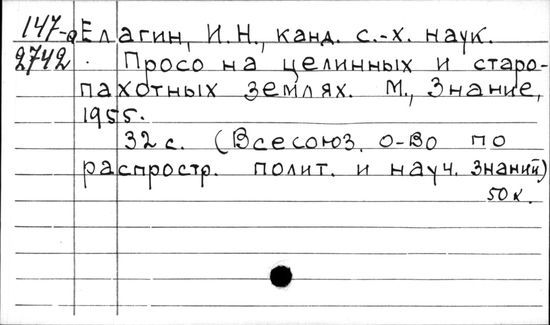 147-а Елагин, И.Н., канд. с.-х. наук.
2742 Просо на целинных и старо-
пахотных землях. М., Знание,
1955.
32 с. (Всесоюз. о-во по
распростр. полит. и науч. знаний)
50 к.